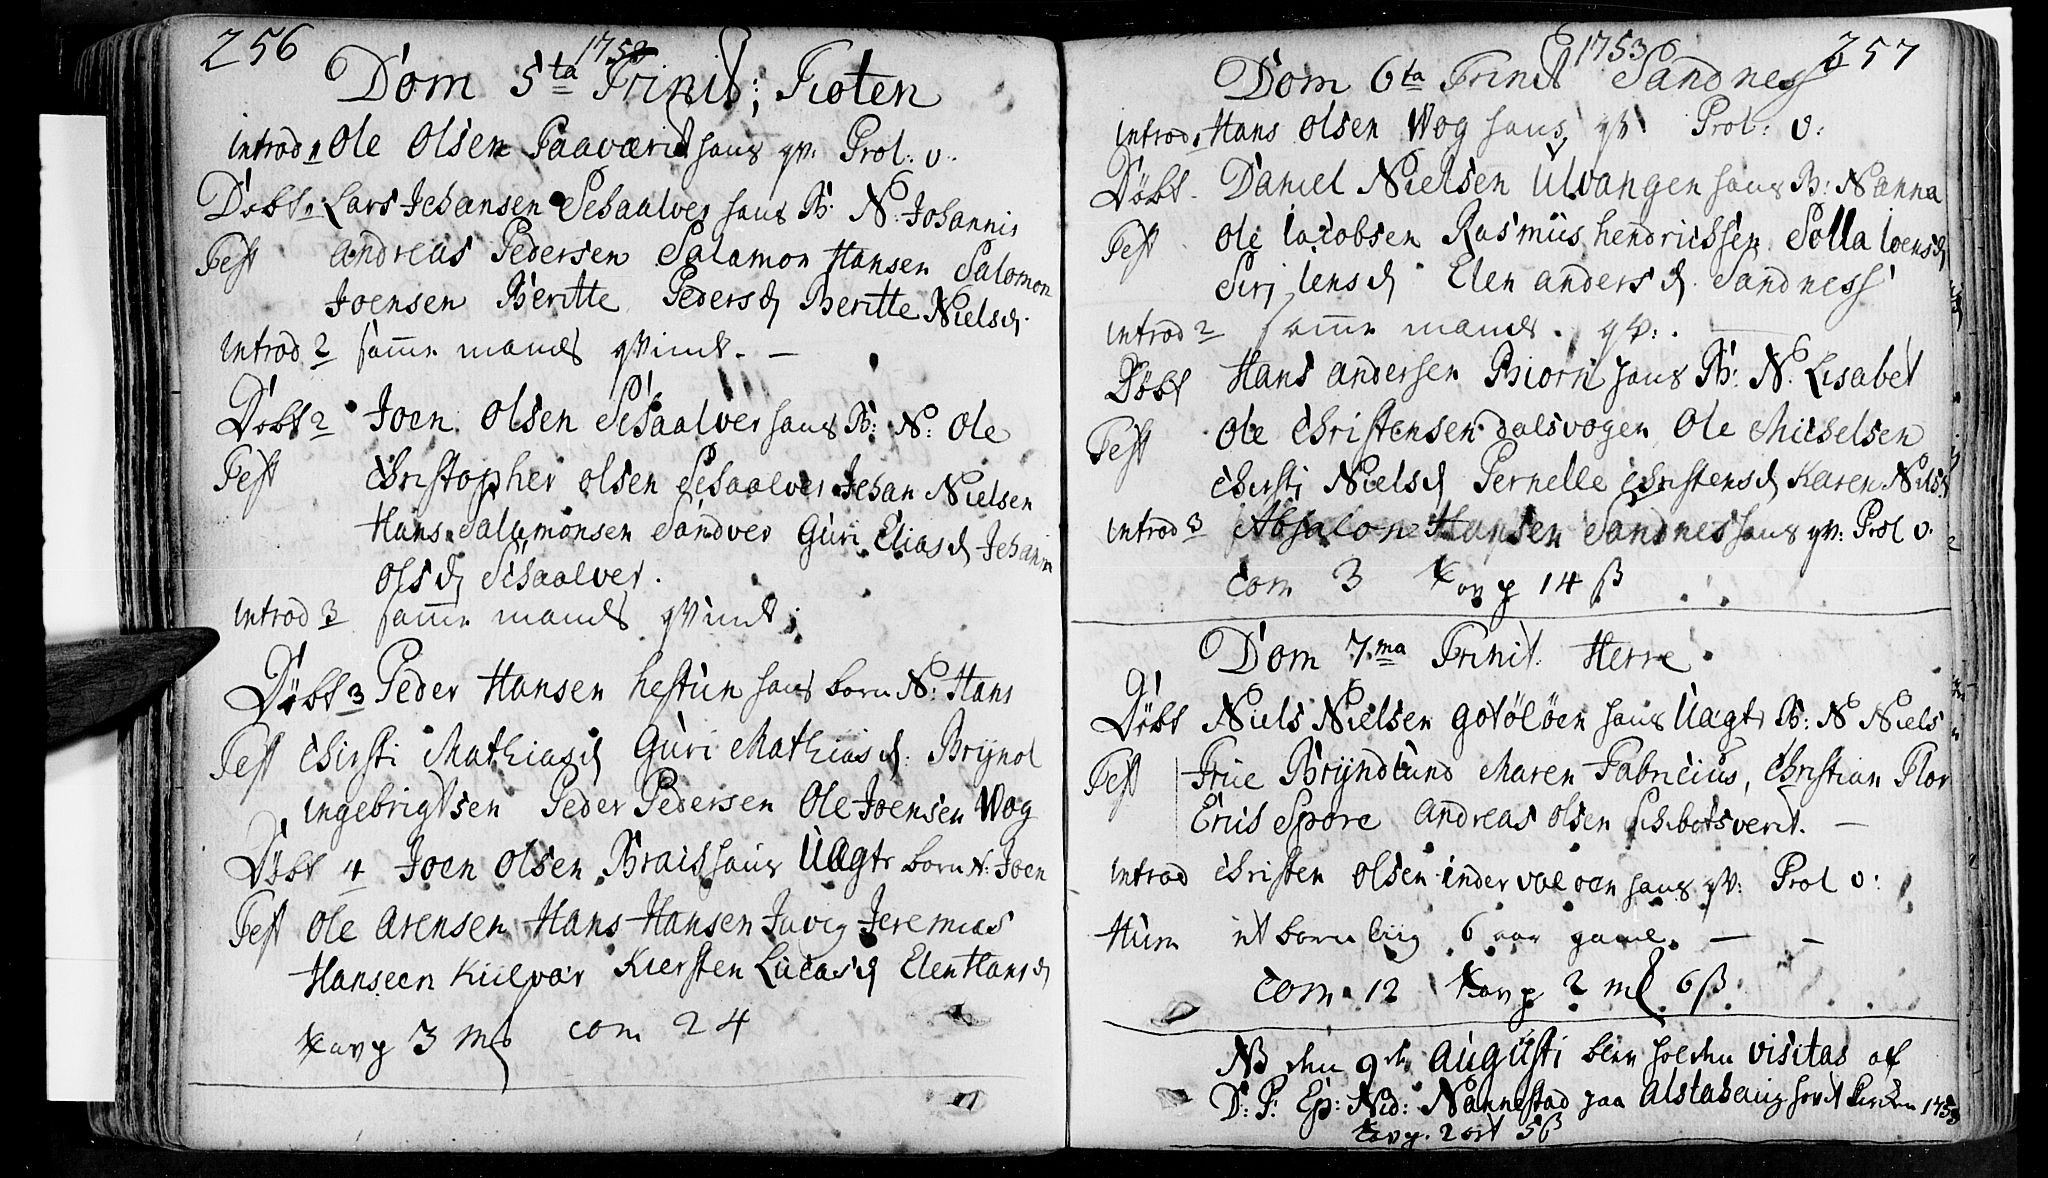 256
1753
Dom 5ta Trinit; Tioten
introd 1 Ole Olsen Paaværid hans qv: Prol: v.
Døbt 1 Lars Jehansen Schaalver hans B: N: Johannis
Test Andreas Pedersen Salamon Hansen Salomon
Joensen Beritte Pedersd Beritte Nielsd.
introd 2 samme mands qvinde. —
Døbt 2 Joen Olsen Schaalver hans B: N: Ole
Test Christopher Olsen Schaalver Jehan Nielsen
Hans Salamonsen Sandver Guri Eliasd Jehanna
Olsd Schaalver.
introd 3 samme mands qvinde;
Døbt 3 Peder Hansen hestun hans born N: Hans
Test Chirsti Mathiasd Guri Mathiasd. Brynol
ingebrigtsen Peder Pedersen Ole Joensen Wog
Døbt 4 Joen Olsen Brais hans Uægte born N: Joen
Test Ole Arensen Hans Hansen Juvig Jeremias
Hanseen Kiilvær Kiersten Lucasd Elen Hansd
Tavg 3 mk com 24
257
1753
Dom 6ta Trinit Sandness
introd 1 Hans Olsen Wog hans qv Prol: v:
Døbt Daniel Nielsen Ulvangen hans B: Nanna
Test Ole Jacobsen Rasmus hendrichsen Solla Joensd
Siri Jensd Elen andersd Sandness
introd 2 samme mands. qv:. —
Døbt Hans andersen Biorn hans B: N. Lisabet
Test Ole Christensen dalsvogen Ole Michelsen
Chirsti Nielsd Pernelle Christensd Karen Nielsd
introd 3 Absalon Hansen Sandnes hans qv: Prol v:
com 3 Tavg 14 ß
Dom 7ma Trinit. Herrø
Døbt Niels Nielsen Gotøløen hans Uægte B: N Niels
Test Frue Bryndlund Maren Fabricius, Christian Flor
Erics Spore Andreas Olsen Schotsverd. —
introd Christen Olsen indervoloen hans qv: Prol v:
Hum it barn liig 6 aar gamel. — —
com. 12 Tavg 2 mk 6 ß
NB den 9de Augusti blev holden visitas af
D: P: Ep: Nid: Nannestad paa Alstahaug hoved kirken 1753
Tavg. 2 ort 5 ß